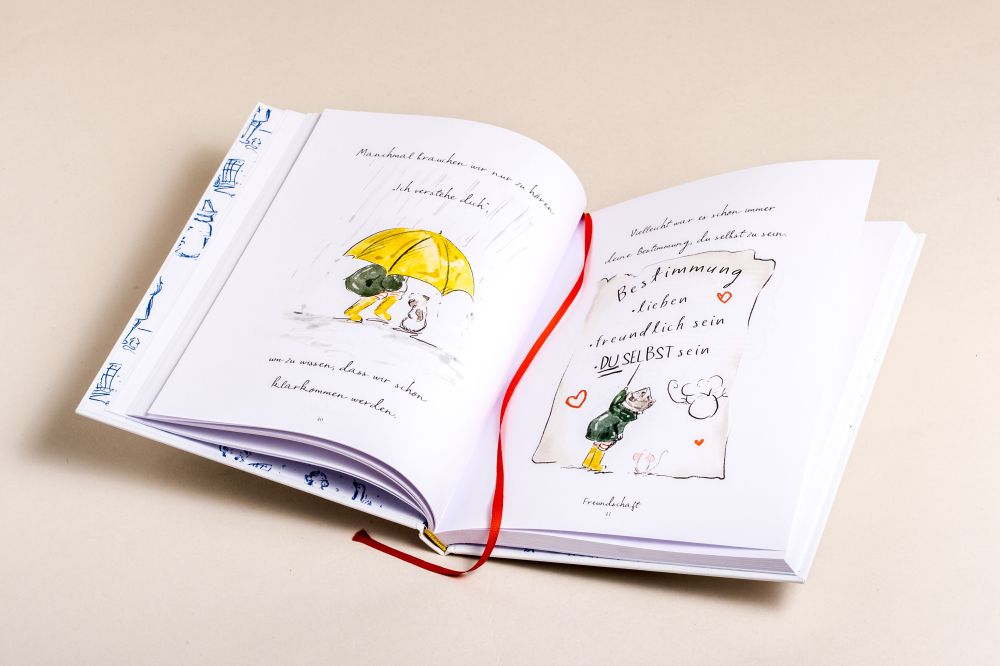 Manchmal brauchen wir nur zu hören
„Ich verstehe dich“,
um zu wissen, dass wir schon
klarkommen werden.
10
Vielleicht war es schon immer
deine Bestimmung, du selbst zu sein.
Bestimmung
. lieben
. freundlich sein
. DU SELBST sein
Freundschaft
11